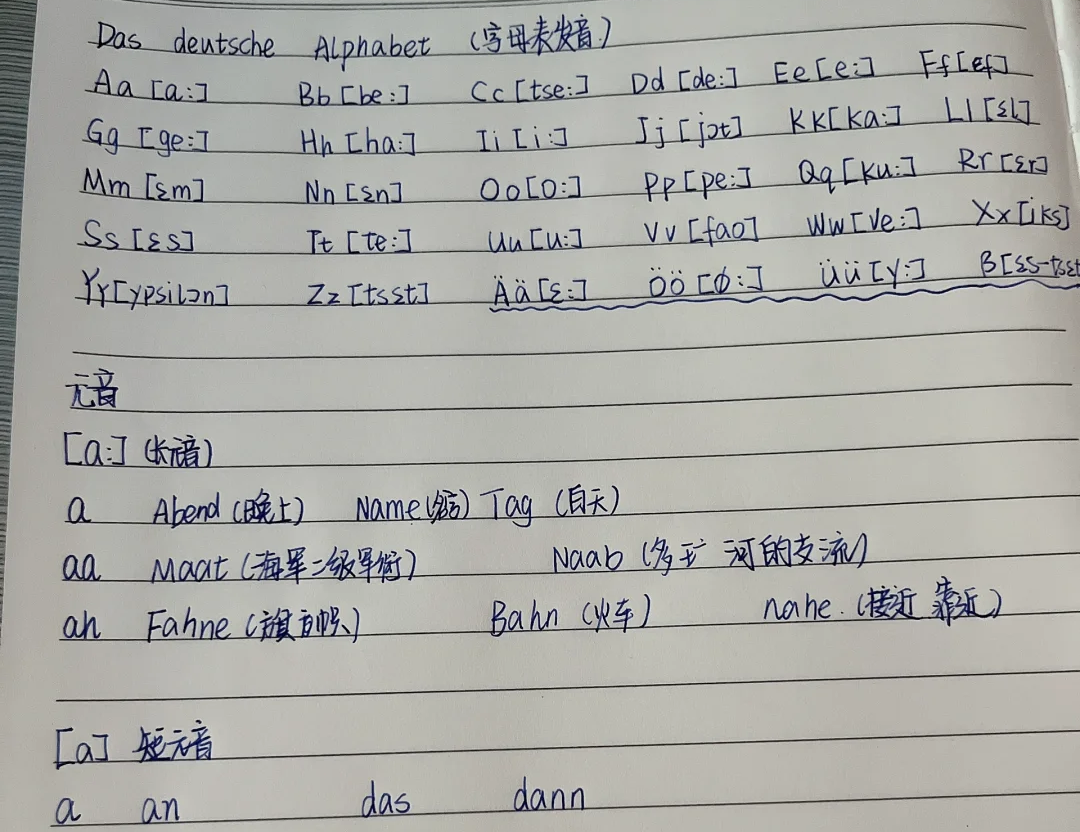 Das deutsche Alphabet (字母表发音)
Aa [a:] Bb [be:] Cc [tse:] Dd [de:] Ee [e:] Ff [ɛf]
Gg [ge:] Hh [ha:] Ii [i:] Jj [jɔt] Kk [ka:] Ll [ɛl]
Mm [ɛm] Nn [ɛn] Oo [o:] Pp [pe:] Qq [ku:] Rr [ɛr]
Ss [ɛs] Tt [te:] Uu [u:] Vv [fao] Ww [ve:] Xx [iks]
Yy [ypsilɔn] Zz [tsɛt] Ää [ɛ:] Öö [ø:] Üü [y:] ß [ɛs-tsɛt
元音
[a:] (长元音)
a Abend (晚上) Name Tag (白天)
aa Maat (海军二级军衔) Naab (多 河的支流)
ah Fahne (旗帜) Bahn (火车) nahe. (接近 靠近)
[a] 短元音
a an das dann